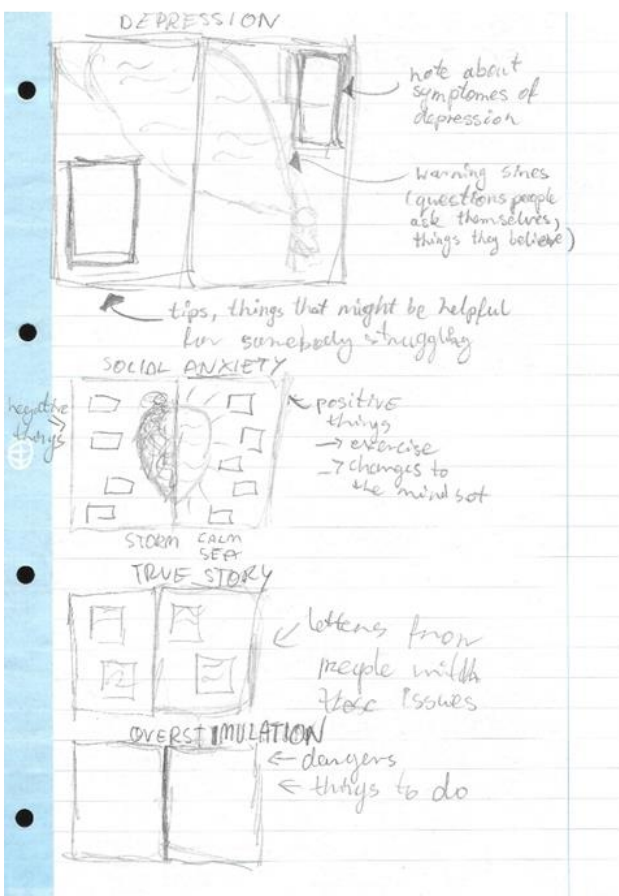 DEPRESSION
note about
symptomes of
depression
warning sines
(questions people
ask themselves,
things they believe)
tips, things that might be helpful
for somebody struggling
SOCIAL ANXIETY
negative
things
positive
things
→ exercise
→ changes to
the mind set
STORM CALM
SEA
TRUE STORY
letters from
people with
these issues
OVERSTIMULATION
← dangers
← things to do